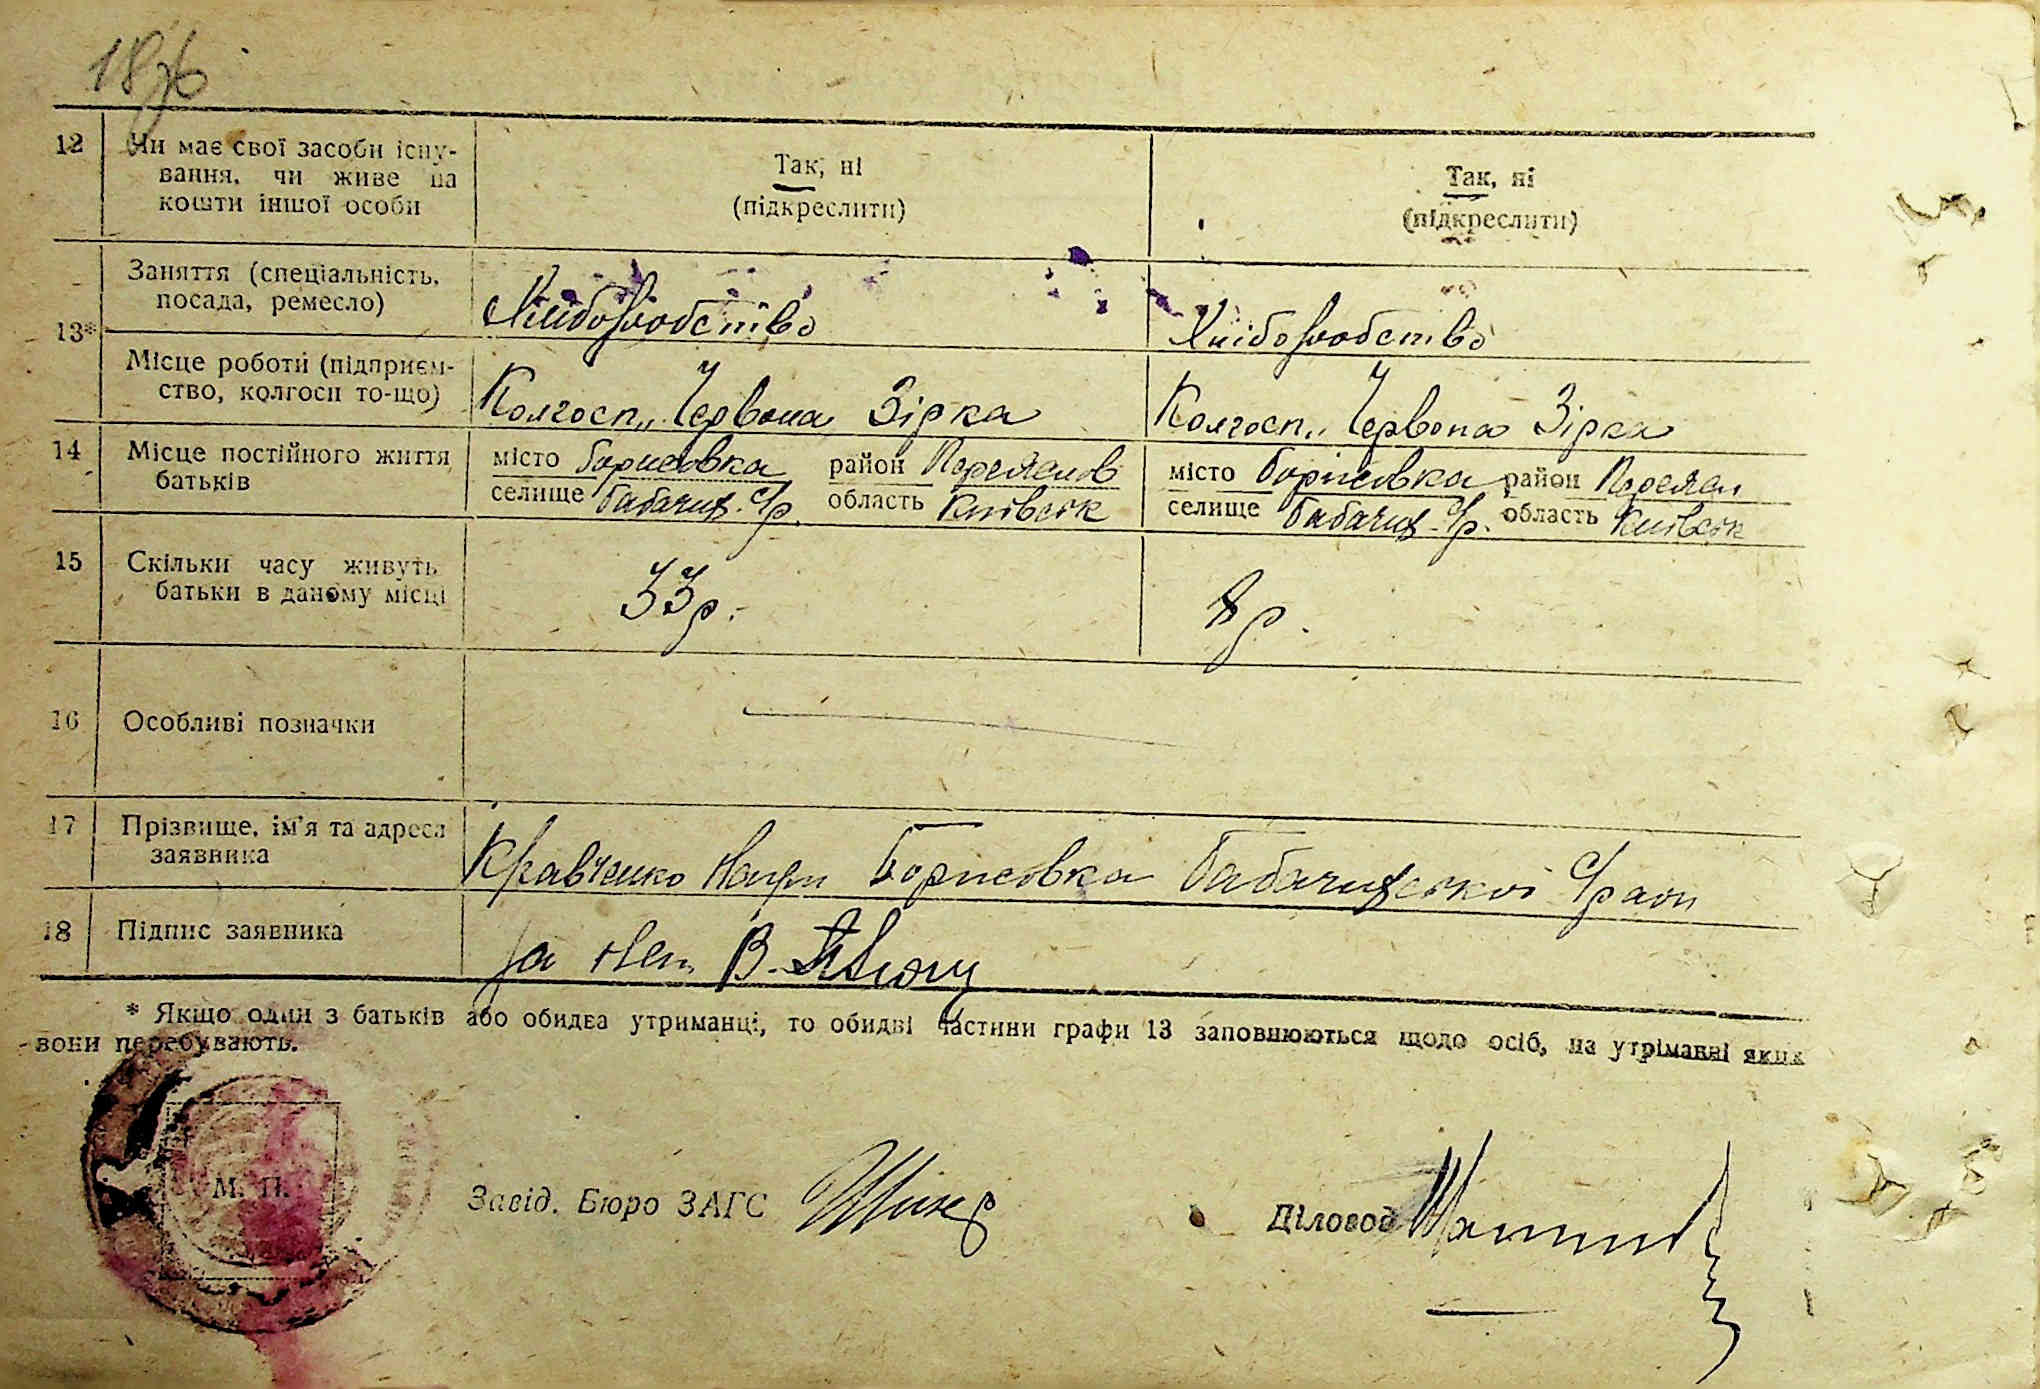 12 Чи має свої засоби існу- Так, ні Так, ні
вання, чи живе на (підкреслити) (підкреслити)
кошти іншої особи
Заняття (спеціальність, Хліборобство Хліборобство
посада, ремесло)
13*
Місце роботи (підприєм- Колгосп „Червона Зірка Колгосп „Червона Зірка
ство, колгосп то-що)
14 Місце постійного життя місто Борисовка район Переяслов місто Борисовка район Переясл
батьків селище Бабачих. С/р. область Київськ селище Бабачих. С/р. область Київськ
15 Скільки часу живуть 33р. 8р.
батьки в даному місці
16 Особливі позначки
17 Прізвище, ім'я та адреса Кравченко Борисовка С/ради
заявника
18 Підпис заявника За неп. В.
* Якщо один з батьків або обидва утриманці, то обидві частини графи 13 заповнюються щодо осіб, на утріманні яких
вони перебувають.
М. П.
Завід. Бюро ЗАГС Діловод